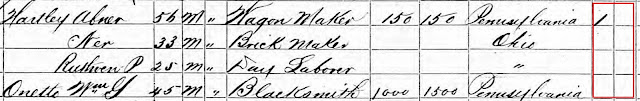 Hartley Abner 56 M " Wagon Maker 150 150 Pennsylvania 1
Ner 33 M " Brick Maker Ohio
Ruthven P 25 M " Day Laborer "
Onette Wm G 45 M " Blacksmith 1000 1500 Pennsylvania